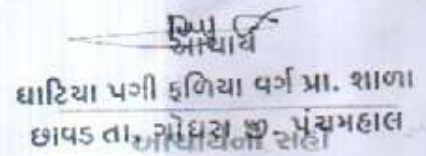 આચાર્ય
ઘાટિયા પગી ફળિયા વર્ગ પ્રા. શાળા
છાવડ તા. ગોધરા જી. પંચમહાલ
આચાર્યની સહી